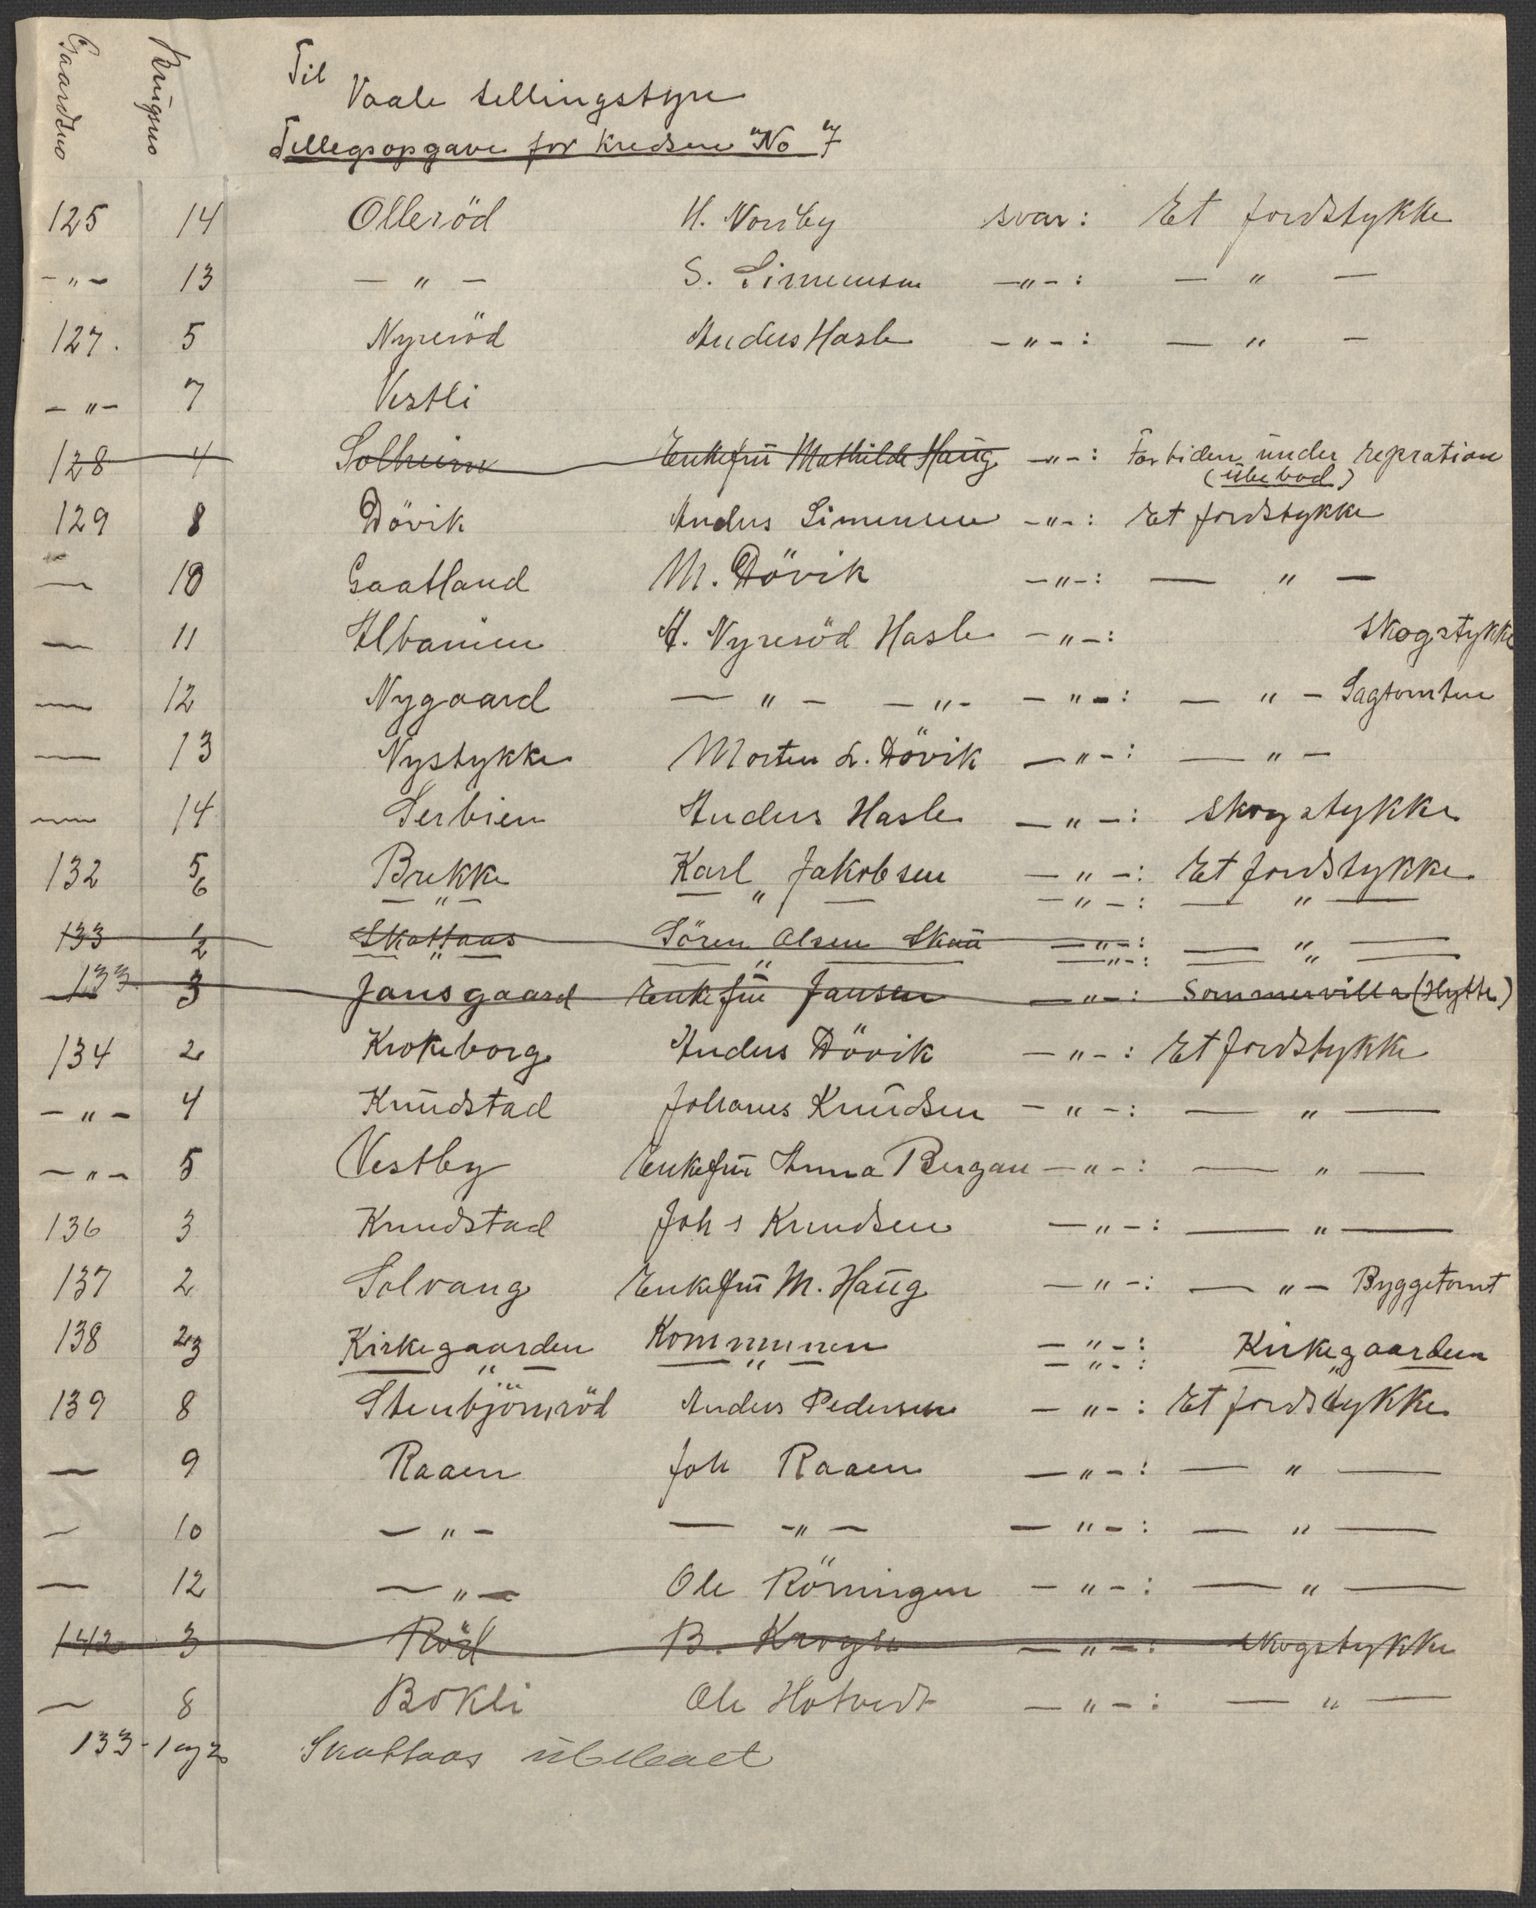 Gaardsno Brugsno
Til
Vaale tellingstyre
Tillegsopgave for Kredsen "No" 7
125 14 Olleröd H. Nordby svar: Et Jordstykke
-"- 13 -"- S. Simensen -"-: -"-
127. 5 Nyreröd Anders Hasle -"-: -"-
-"- 7 Vestli
128 4 Solheim Enkefrü Mathilde Haüg -"-: For tiden ünder repration
(übebod)
129 8 Dövik Anders Simensen -"-: Et Jordstykke
— 10 Gaatland M. Dövik -"-: -"-
— 11 Albanien A. Nyreröd Hasle -"-: Skogstykke
— 12 Nygaard -"- -"- -"-: -"- Sagtomten
— 13 Nystykke Morten L. Dövik -"-: -"-
— 14 Serbien Anders Hasle -"-: Skogstykke
132 5 Brekke Karl Jakobsen -"-: Et Jordstykke
6 -"- -"- -"-: -"-
133 1 Skattaas Sören Olsen Skaü -"-: -"-
2 -"- -"- -"-: -"-
133 3 Jansgaard Enkefrü Jansen -"-: Sommervilla (Hytte)
134 2 Krokeborg Anders Dövik -"-: Et Jordstykke
-"- 4 Knüdstad Johanes Knüdsen -"-: -"-
-"- 5 Vestby Enkefrü Anna Bergan -"-: -"-
136 3 Knudstad Joh s Knudsen -"-: -"-
137 2 Solvang Enkefrü M. Haüg -"-: -"- Byggetomt
138 2 Kirkegaarden Kommunen -"-: Kirkegaarden
3 -"- -"- -"-: -"-
139 8 Stenbjörnröd Anders Pedersen -"-: Et Jordstykke
— 9 Raaen Joh Raaen -"-: -"-
— 10 -"- -"- -"-: -"-
— 12 -"- Ole Römingen -"-: -"-
142 3 Röd B. Krogh -"-: Skogstykke
— 8 Bökli Ole Hotvedt -"-: -"-
133 - 1 og 2 Skattaas